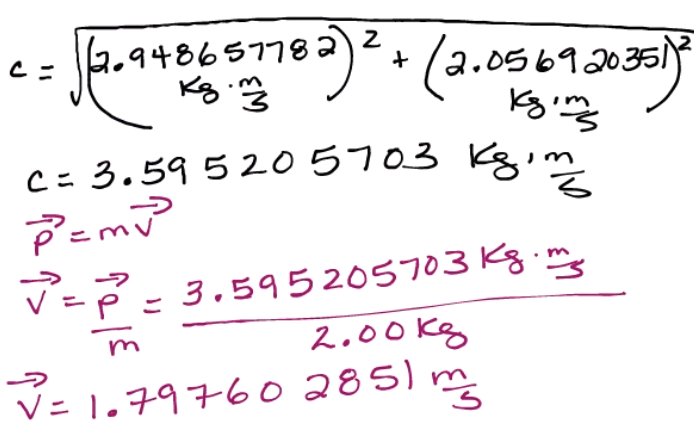 c = √((2.948657782 kg·m/s)² + (2.056920351 kg·m/s)²)
c = 3.595205703 kg·m/s
p⃗ = mv⃗
v⃗ = p⃗/m = 3.595205703 kg·m/s / 2.00 kg
v⃗ = 1.797602851 m/s